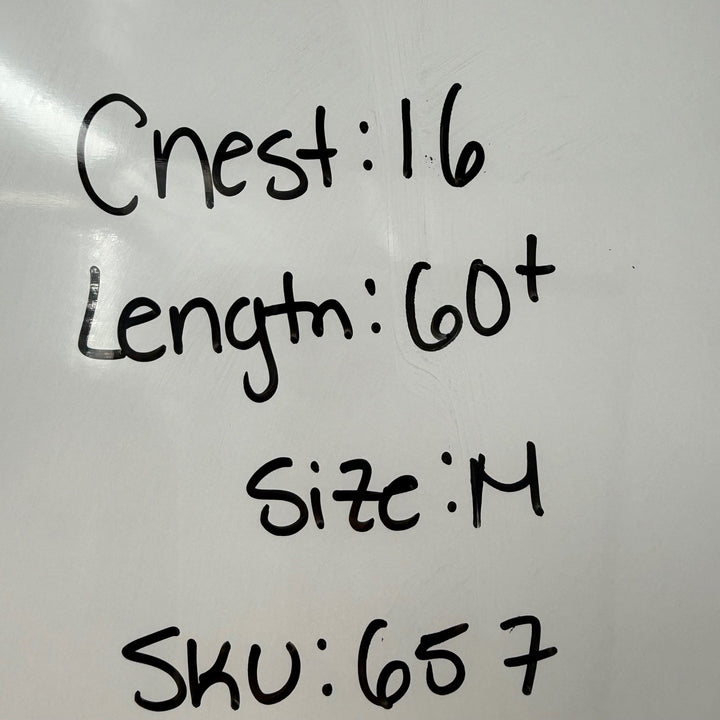 Chest:16
Length:60+
Size:M
SKU:657